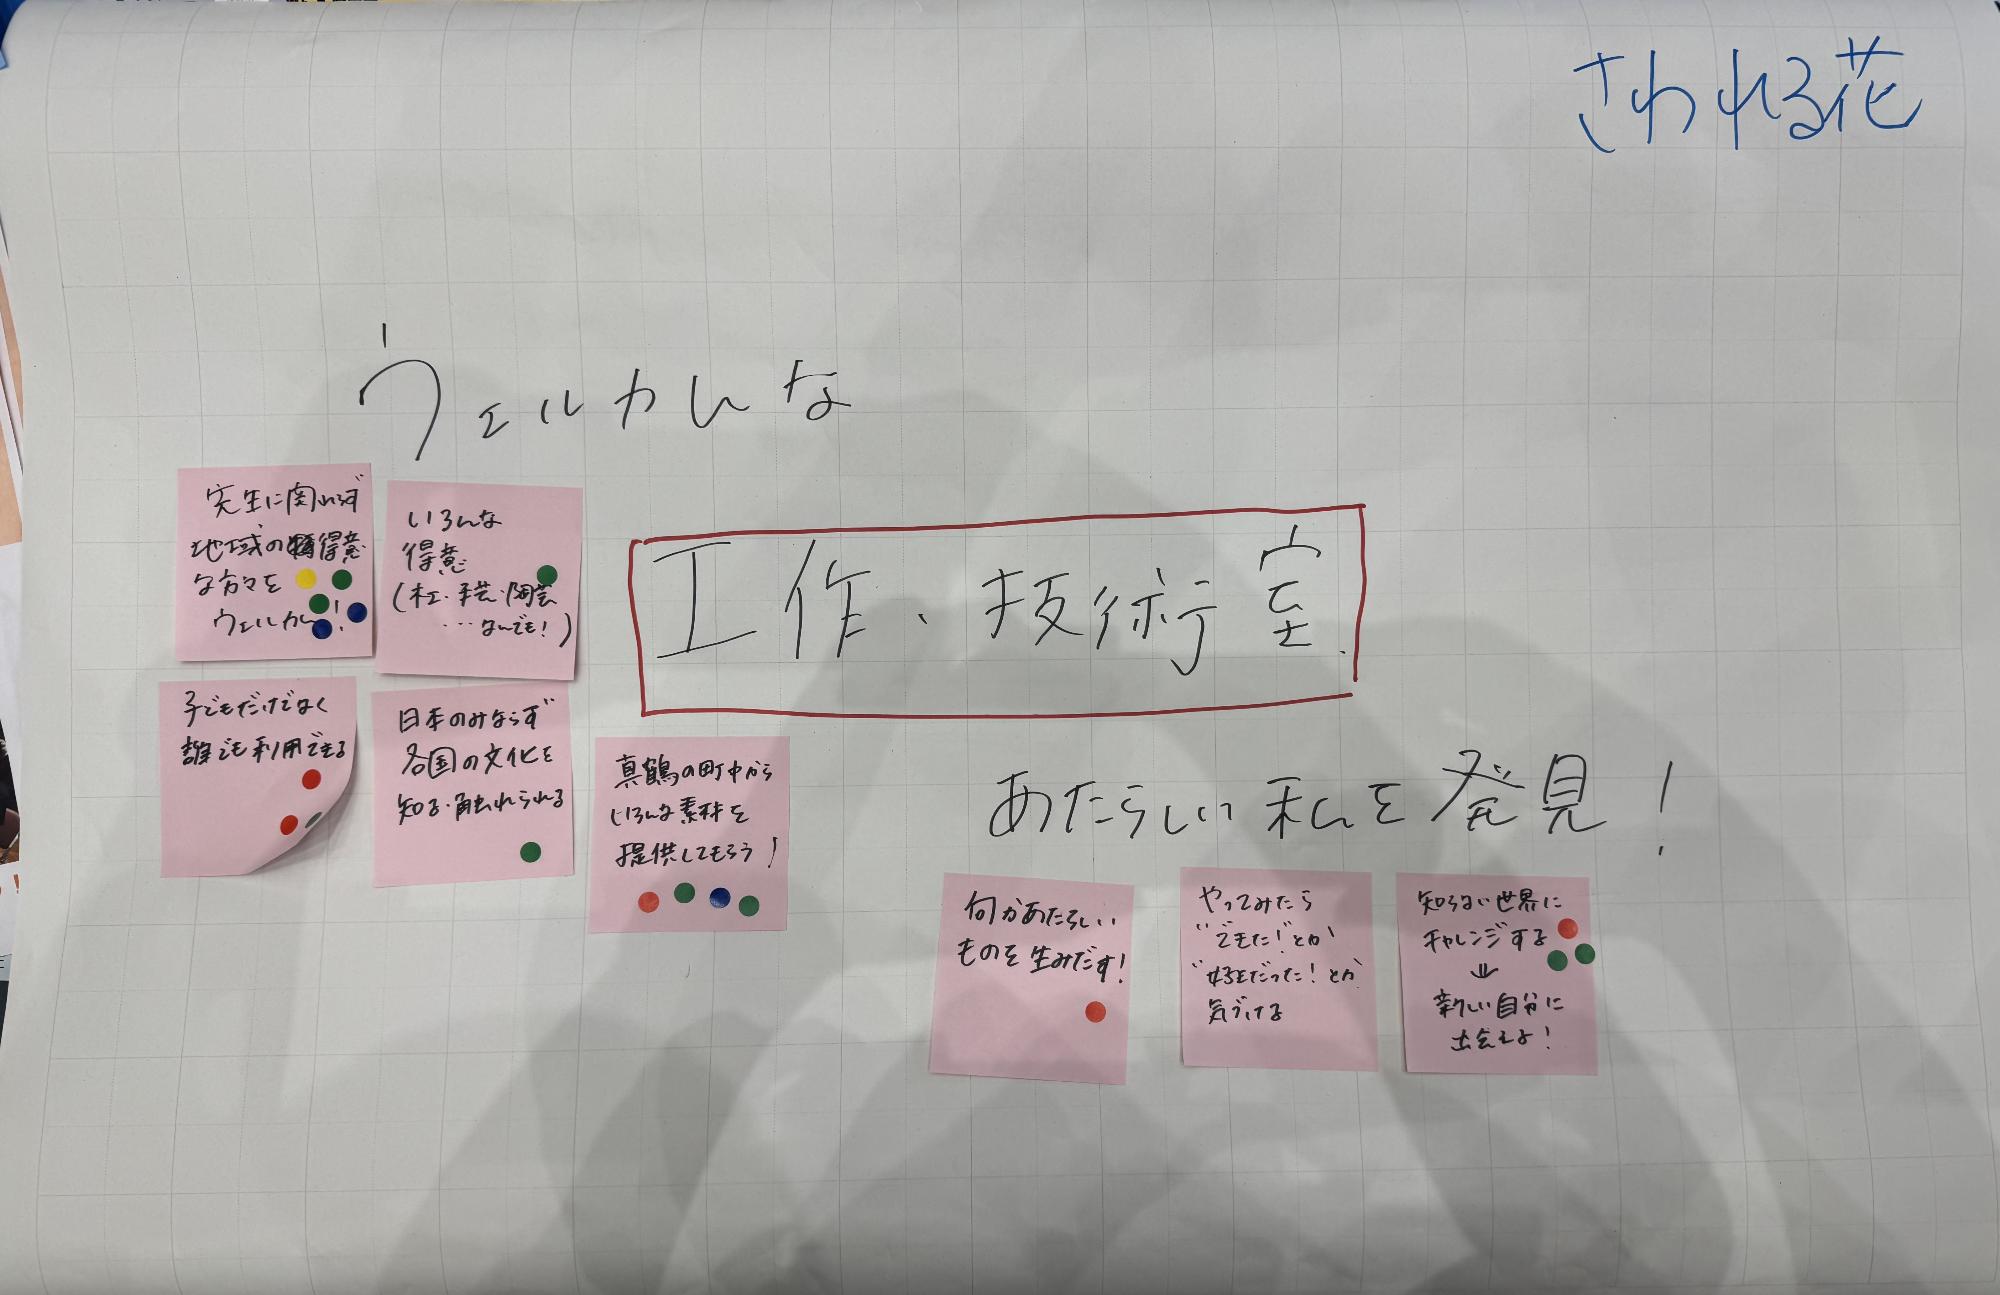 さわれる花
ウェルカんな
先生に関わらず
地域の得意
な方々を
ウェルカん!
いろんな
得意
(木工・手芸・陶芸
…なんでも!)
工作・技術室
子どもだけでなく
誰でも利用できる
日本のみならず
各国の文化を
知る・触れられる
真鶴の町中から
いろんな素材を
提供してもらう!
あたらしい私を発見!
何かあたらしい
ものを生みだす!
やってみたら
"できた!"とか
"好きだった!"とか
気づける
知らない世界に
チャレンジする
⇓
新しい自分に
出会えよ!